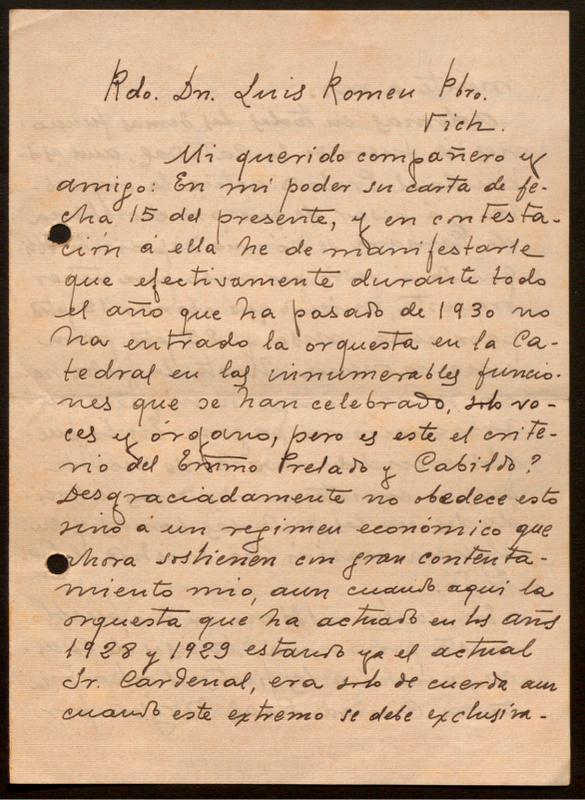 Rdo. Dn. Luis Romeu Pbro.
Vich.
Mi querido compañero y
amigo: En mi poder su carta de fe-
cha 15 del presente, y en contesta-
ción á ella he de manifestarle
que efectivamente durante todo
el año que ha pasado de 1930 no
ha entrado la orquesta en la Ca-
tedral en las innumerables funcio-
nes que se han celebrado, solo vo-
ces y órgano, pero es este el crite-
rio del Emmo Prelado y Cabildo?
Desgraciadamente no obedece esto
sino á un regimen económico que
ahora sostienen con gran contenta-
miento mio, aun cuando aqui la
orquesta que ha actuado en los años
1928 y 1929 estando ya el actual
Sr. Cardenal, era solo de cuerda aun
cuando este extremo se debe exclusiva-